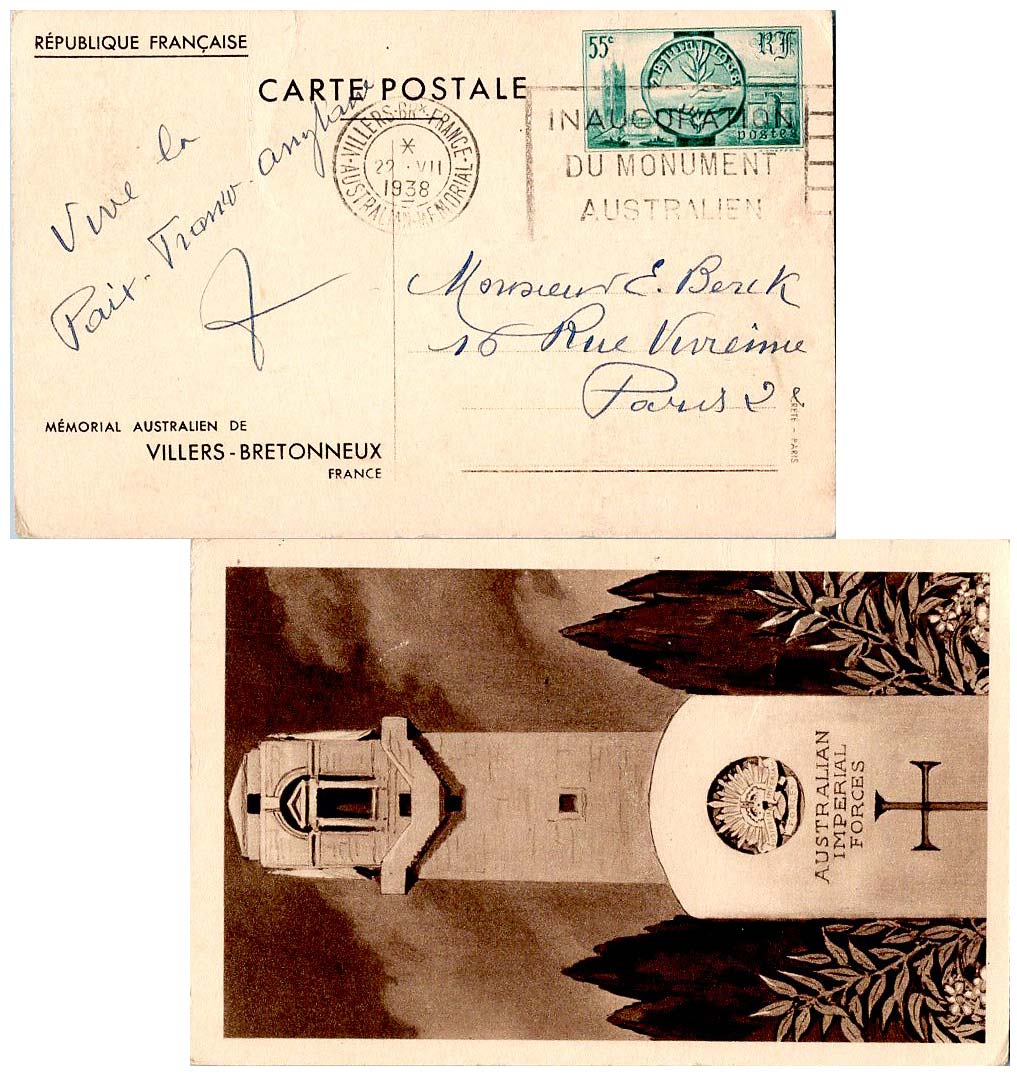 RÉPUBLIQUE FRANÇAISE
CARTE POSTALE
55c RF
28 JUIN 1938
postes
VILLERS-BRX FRANCE
AUSTRALIAN-MEMORIAL
* 22 · VII
1938
INAUGURATION
DU MONUMENT
AUSTRALIEN
Vive la
Paix - Franco-anglaise
Monsieur E. Berck
16 Rue Vivienne
Paris 2
MÉMORIAL AUSTRALIEN DE
VILLERS-BRETONNEUX
FRANCE
CRÉTÉ - PARIS
AUSTRALIAN
IMPERIAL
FORCES